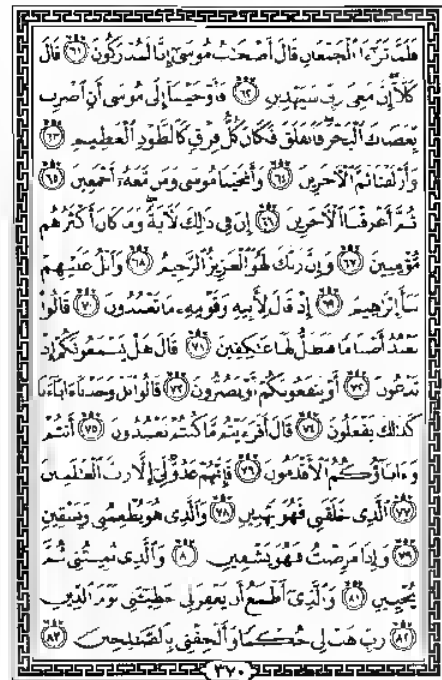 فَلَمَّا تَرَٰٓءَا ٱلْجَمْعَانِ قَالَ أَصْحَٰبُ مُوسَىٰٓ إِنَّا لَمُدْرَكُونَ ۝٦١ قَالَ
كَلَّآ إِنَّ مَعِىَ رَبِّى سَيَهْدِينِ ۝٦٢ فَأَوْحَيْنَآ إِلَىٰ مُوسَىٰٓ أَنِ ٱضْرِب
بِّعَصَاكَ ٱلْبَحْرَ فَٱنفَلَقَ فَكَانَ كُلُّ فِرْقٍ كَٱلطَّوْدِ ٱلْعَظِيمِ ۝٦٣
وَأَزْلَفْنَا ثَمَّ ٱلْءَاخَرِينَ ۝٦٤ وَأَنجَيْنَا مُوسَىٰ وَمَن مَّعَهُۥٓ أَجْمَعِينَ ۝٦٥
ثُمَّ أَغْرَقْنَا ٱلْءَاخَرِينَ ۝٦٦ إِنَّ فِى ذَٰلِكَ لَءَايَةً وَمَا كَانَ أَكْثَرُهُم
مُّؤْمِنِينَ ۝٦٧ وَإِنَّ رَبَّكَ لَهُوَ ٱلْعَزِيزُ ٱلرَّحِيمُ ۝٦٨ وَٱتْلُ عَلَيْهِمْ
نَبَأَ إِبْرَٰهِيمَ ۝٦٩ إِذْ قَالَ لِأَبِيهِ وَقَوْمِهِۦ مَا تَعْبُدُونَ ۝٧٠ قَالُوا۟
نَعْبُدُ أَصْنَامًا فَنَظَلُّ لَهَا عَٰكِفِينَ ۝٧١ قَالَ هَلْ يَسْمَعُونَكُمْ إِذْ
تَدْعُونَ ۝٧٢ أَوْ يَنفَعُونَكُمْ أَوْ يَضُرُّونَ ۝٧٣ قَالُوا۟ بَلْ وَجَدْنَآ ءَابَآءَنَا
كَذَٰلِكَ يَفْعَلُونَ ۝٧٤ قَالَ أَفَرَءَيْتُم مَّا كُنتُمْ تَعْبُدُونَ ۝٧٥ أَنتُمْ
وَءَابَآؤُكُمُ ٱلْأَقْدَمُونَ ۝٧٦ فَإِنَّهُمْ عَدُوٌّ لِّىٓ إِلَّا رَبَّ ٱلْعَٰلَمِينَ
۝٧٧ ٱلَّذِى خَلَقَنِى فَهُوَ يَهْدِينِ ۝٧٨ وَٱلَّذِى هُوَ يُطْعِمُنِى وَيَسْقِينِ
۝٧٩ وَإِذَا مَرِضْتُ فَهُوَ يَشْفِينِ ۝٨٠ وَٱلَّذِى يُمِيتُنِى ثُمَّ
يُحْيِينِ ۝٨١ وَٱلَّذِىٓ أَطْمَعُ أَن يَغْفِرَ لِى خَطِيٓـَٔتِى يَوْمَ ٱلدِّينِ
۝٨٢ رَبِّ هَبْ لِى حُكْمًا وَأَلْحِقْنِى بِٱلصَّٰلِحِينَ ۝٨٣
٣٧٠